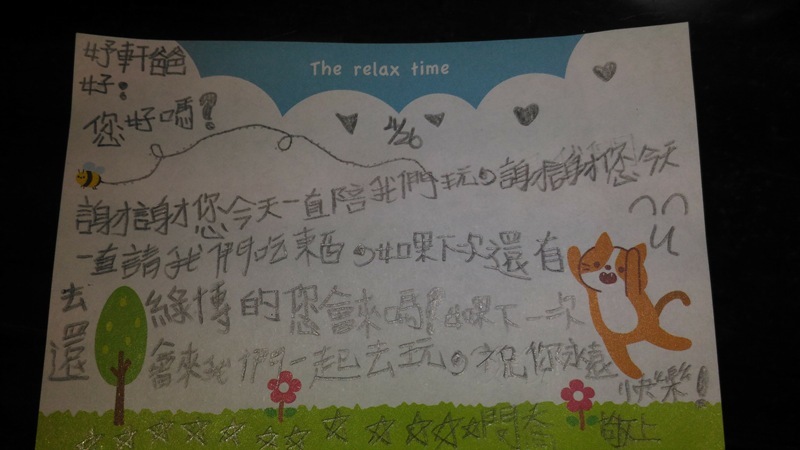 The relax time
妤軒爸爸
好:
您好嗎?
4/26
謝謝您今天一直陪我們玩。謝謝您今天
一直請我們吃東西。如果下次還有
去綠博的您會來嗎?如果下一次
還會來我們一起去玩。祝你永遠
快樂!
敬上